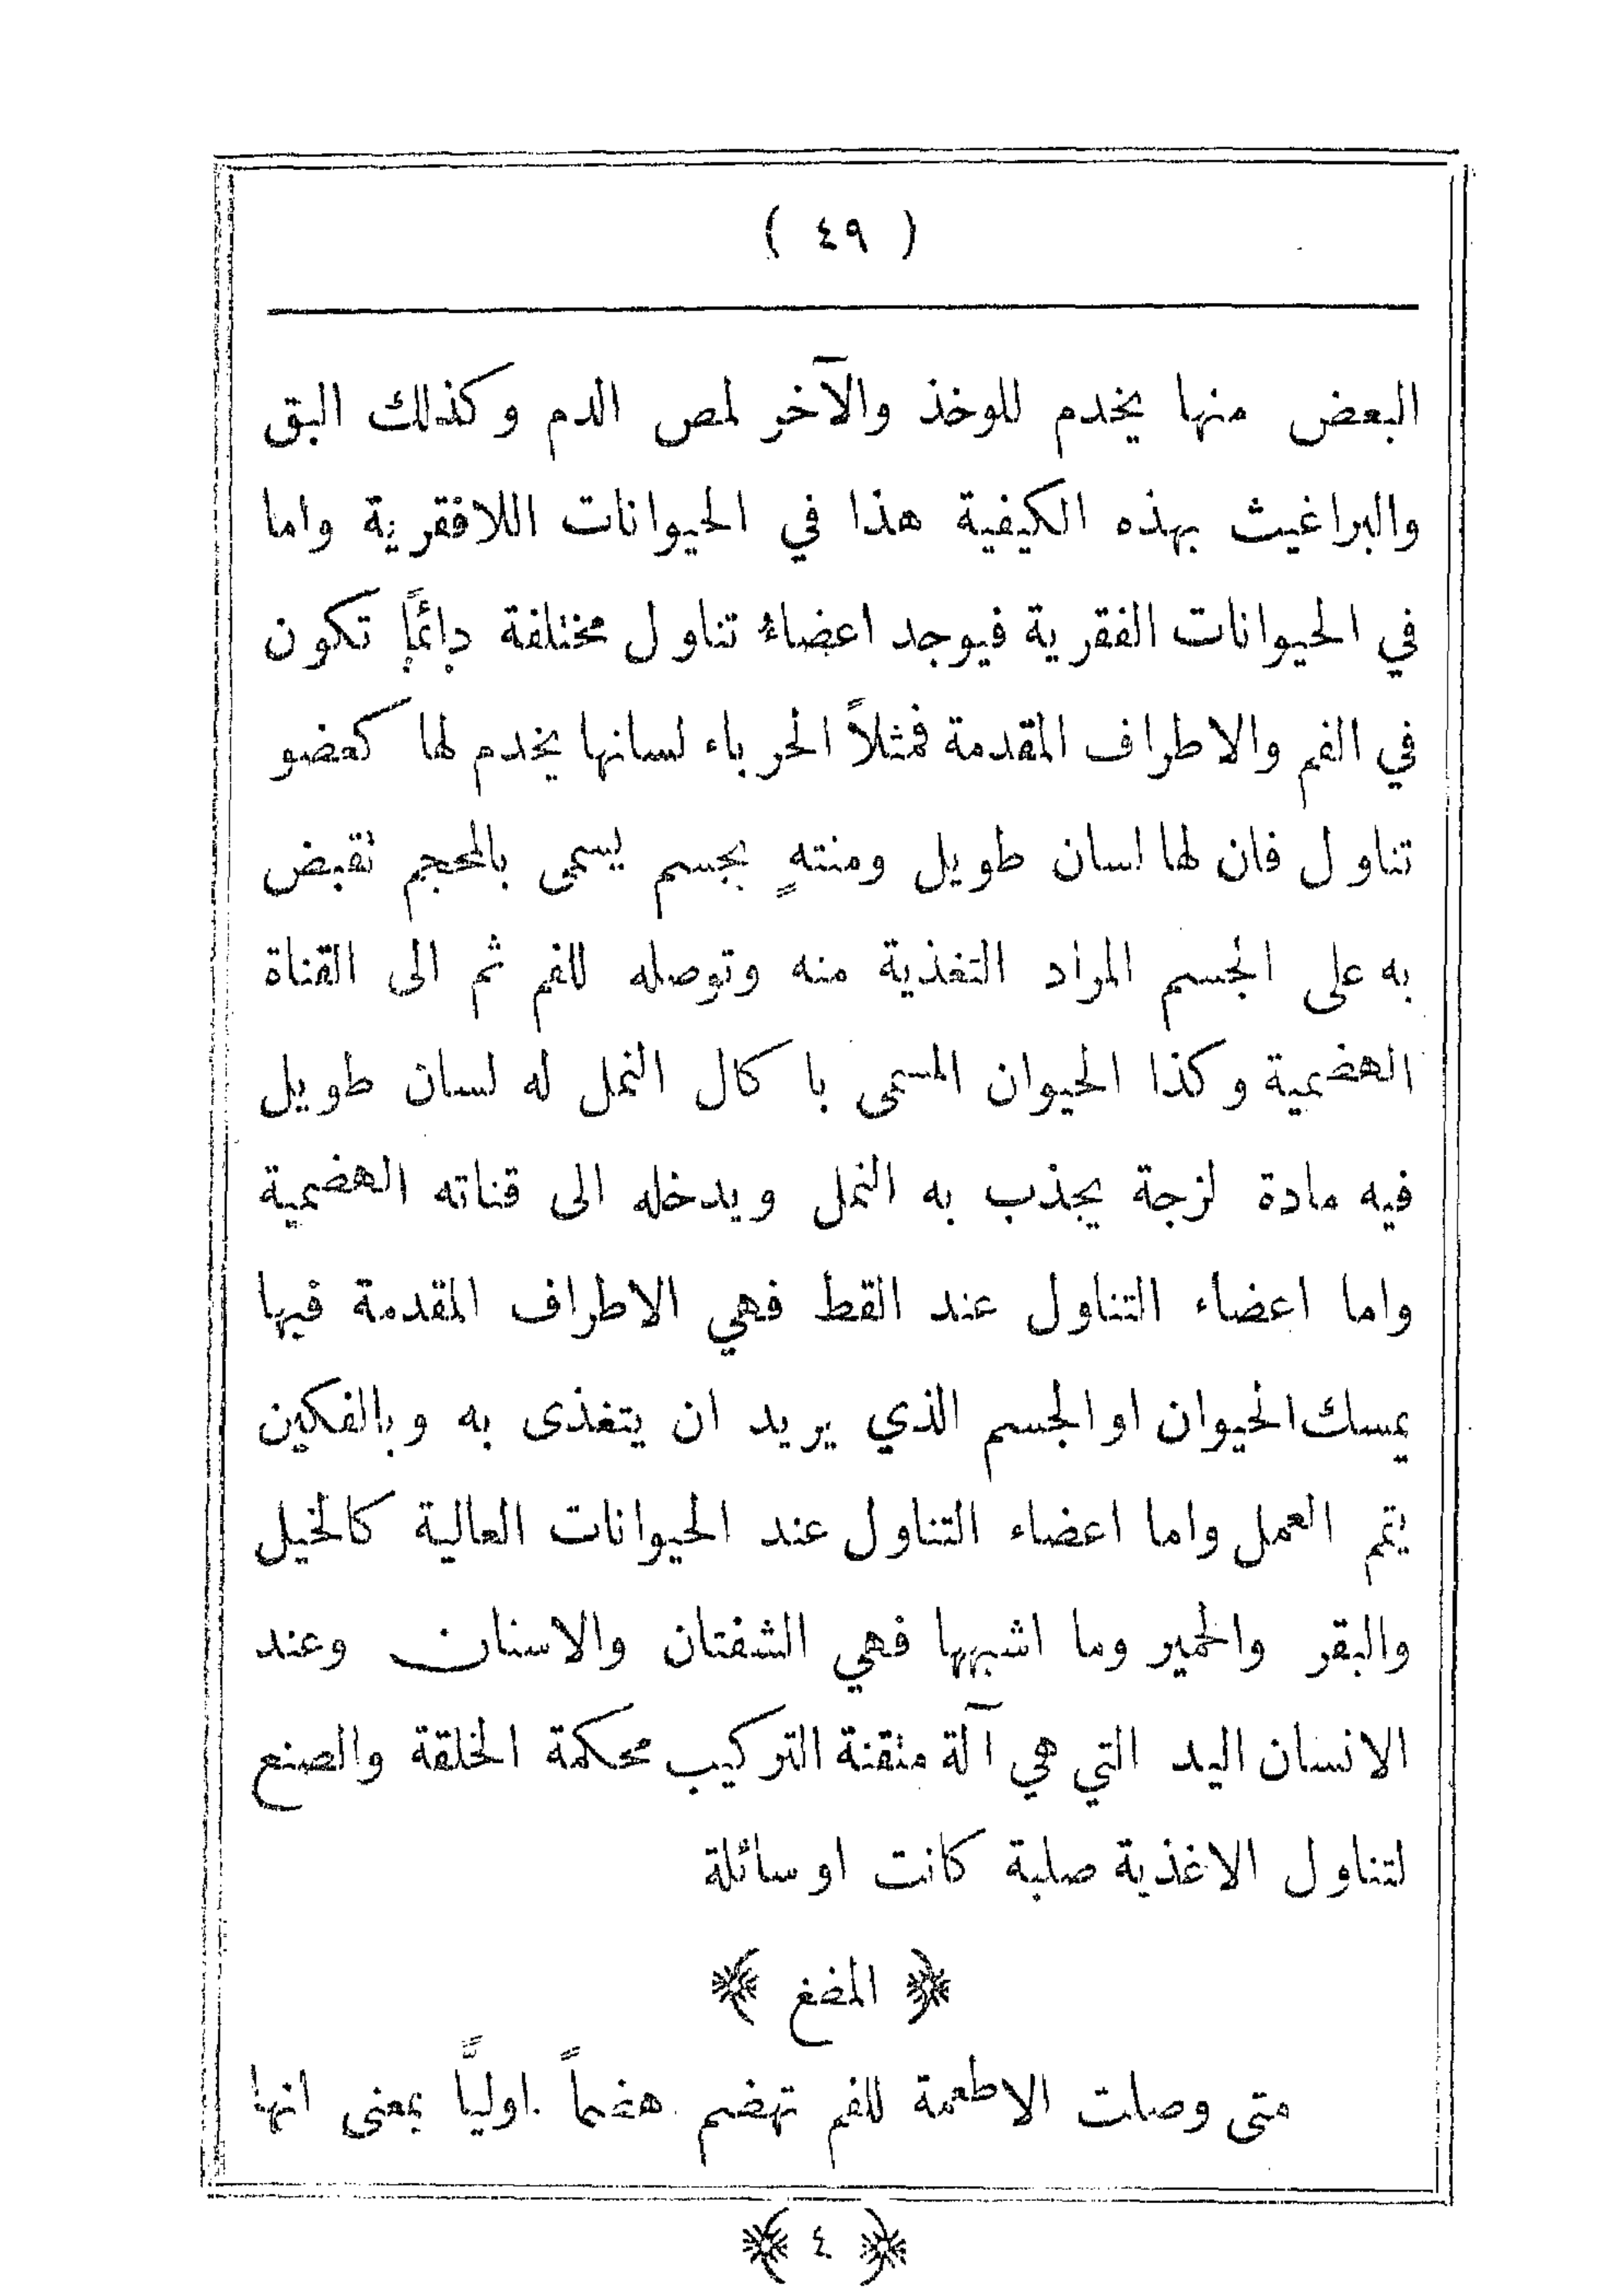 ( ٤٩ )
البعض منها يخدم للوخذ والآخر لمص الدم وكذلك البق
والبراغيث بهذه الكيفية هذا في الحيوانات اللافقرية واما
في الحيوانات الفقرية فيوجد اعضاءُ تناول مختلفة دائماً تكون
في الفم والاطراف المقدمة فمثلاً الحرباء لسانها يخدم لها كعضو
تناول فان لها لسان طويل ومنتهٍ بجسم يسمى بالمحجم تقبض
به على الجسم المراد التغذية منه وتوصله للفم ثم الى القناة
الهضمية وكذا الحيوان المسمى باكال النمل له لسان طويل
فيه مادة لزجة يجذب به النمل ويدخله الى قناته الهضمية
واما اعضاء التناول عند القط فهي الاطراف المقدمة فبها
يمسك الحيوان او الجسم الذي يريد ان يتغذى به وبالفكين
يتم العمل واما اعضاء التناول عند الحيوانات العالية كالخيل
والبقر والحمير وما اشبهها فهي الشفتان والاسنان وعند
الانسان اليد التي هي آلة متقنة التركيب محكمة الخلقة والصنع
لتناول الاغذية صلبة كانت او سائلة
﴿ المضغ ﴾
متى وصلت الاطعمة للفم تهضم هضماً اوليًّا بمعنى انها
﴿ ٤ ﴾